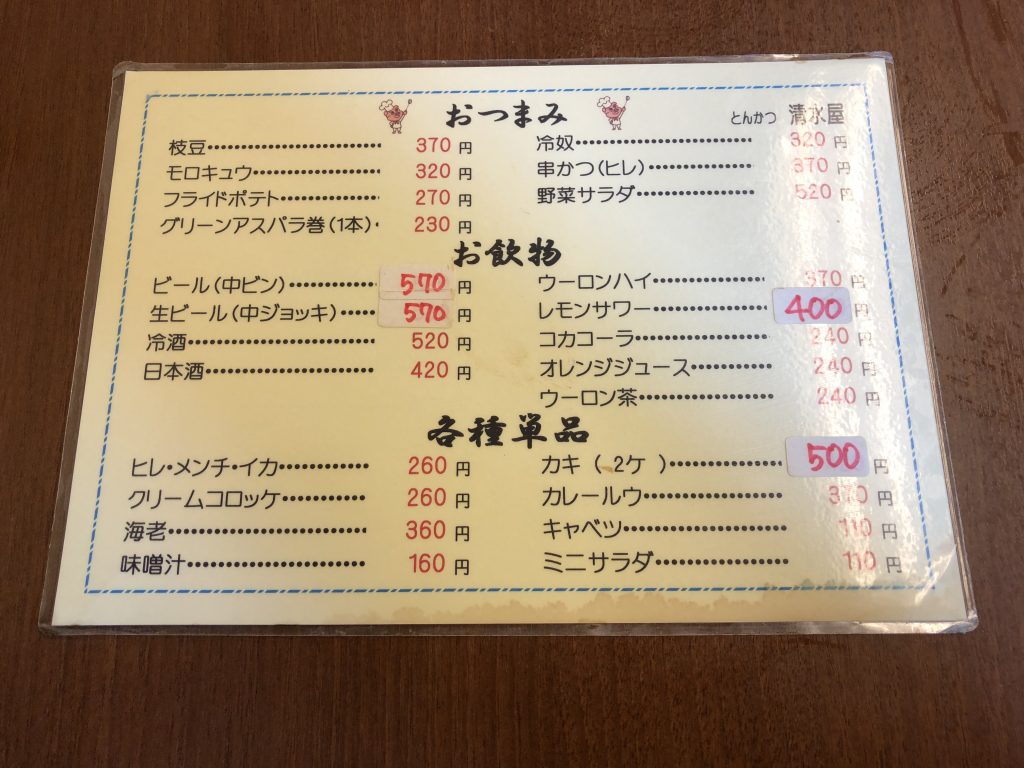 おつまみ
とんかつ 清水屋
枝豆…………………… 370 円
モロキュウ……………… 320 円
フライドポテト………… 270 円
グリーンアスパラ巻(1本)‥ 230 円
冷奴…………………… 320 円
串かつ(ヒレ)………… 370 円
野菜サラダ…………… 520 円
お飲物
ビール(中ビン)………… 570 円
生ビール(中ジョッキ)…… 570 円
冷酒…………………… 520 円
日本酒………………… 420 円
ウーロンハイ…………… 370 円
レモンサワー…………… 400 円
コカコーラ……………… 240 円
オレンジジュース……… 240 円
ウーロン茶……………… 240 円
各種単品
ヒレ・メンチ・イカ……… 260 円
クリームコロッケ……… 260 円
海老…………………… 360 円
味噌汁………………… 160 円
カキ ( 2ケ )…………… 500 円
カレールウ……………… 370 円
キャベツ………………… 110 円
ミニサラダ……………… 110 円